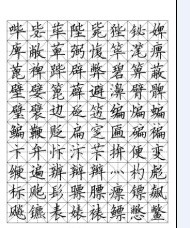 哔 荜 陛 毙 铋 婢
庳 敝 萆 弼 愎 筚 滗 痹
蓖 裨 跸 辟 弊 碧 箅 蔽
壁 嬖 篦 薜 避 濞 臂 髀
璧 襞 边 砭 笾 编 煸 蝙
鳊 鞭 贬 扁 窆 匾 碥 褊
卞 弁 忭 汴 苄 拚 便 变
缏 遍 辨 辩 辫 灬 杓 彪
标 飑 髟 骠 膘 瘭 镖 飙
飚 镳 表 婊 裱 鳔 憋 鳖